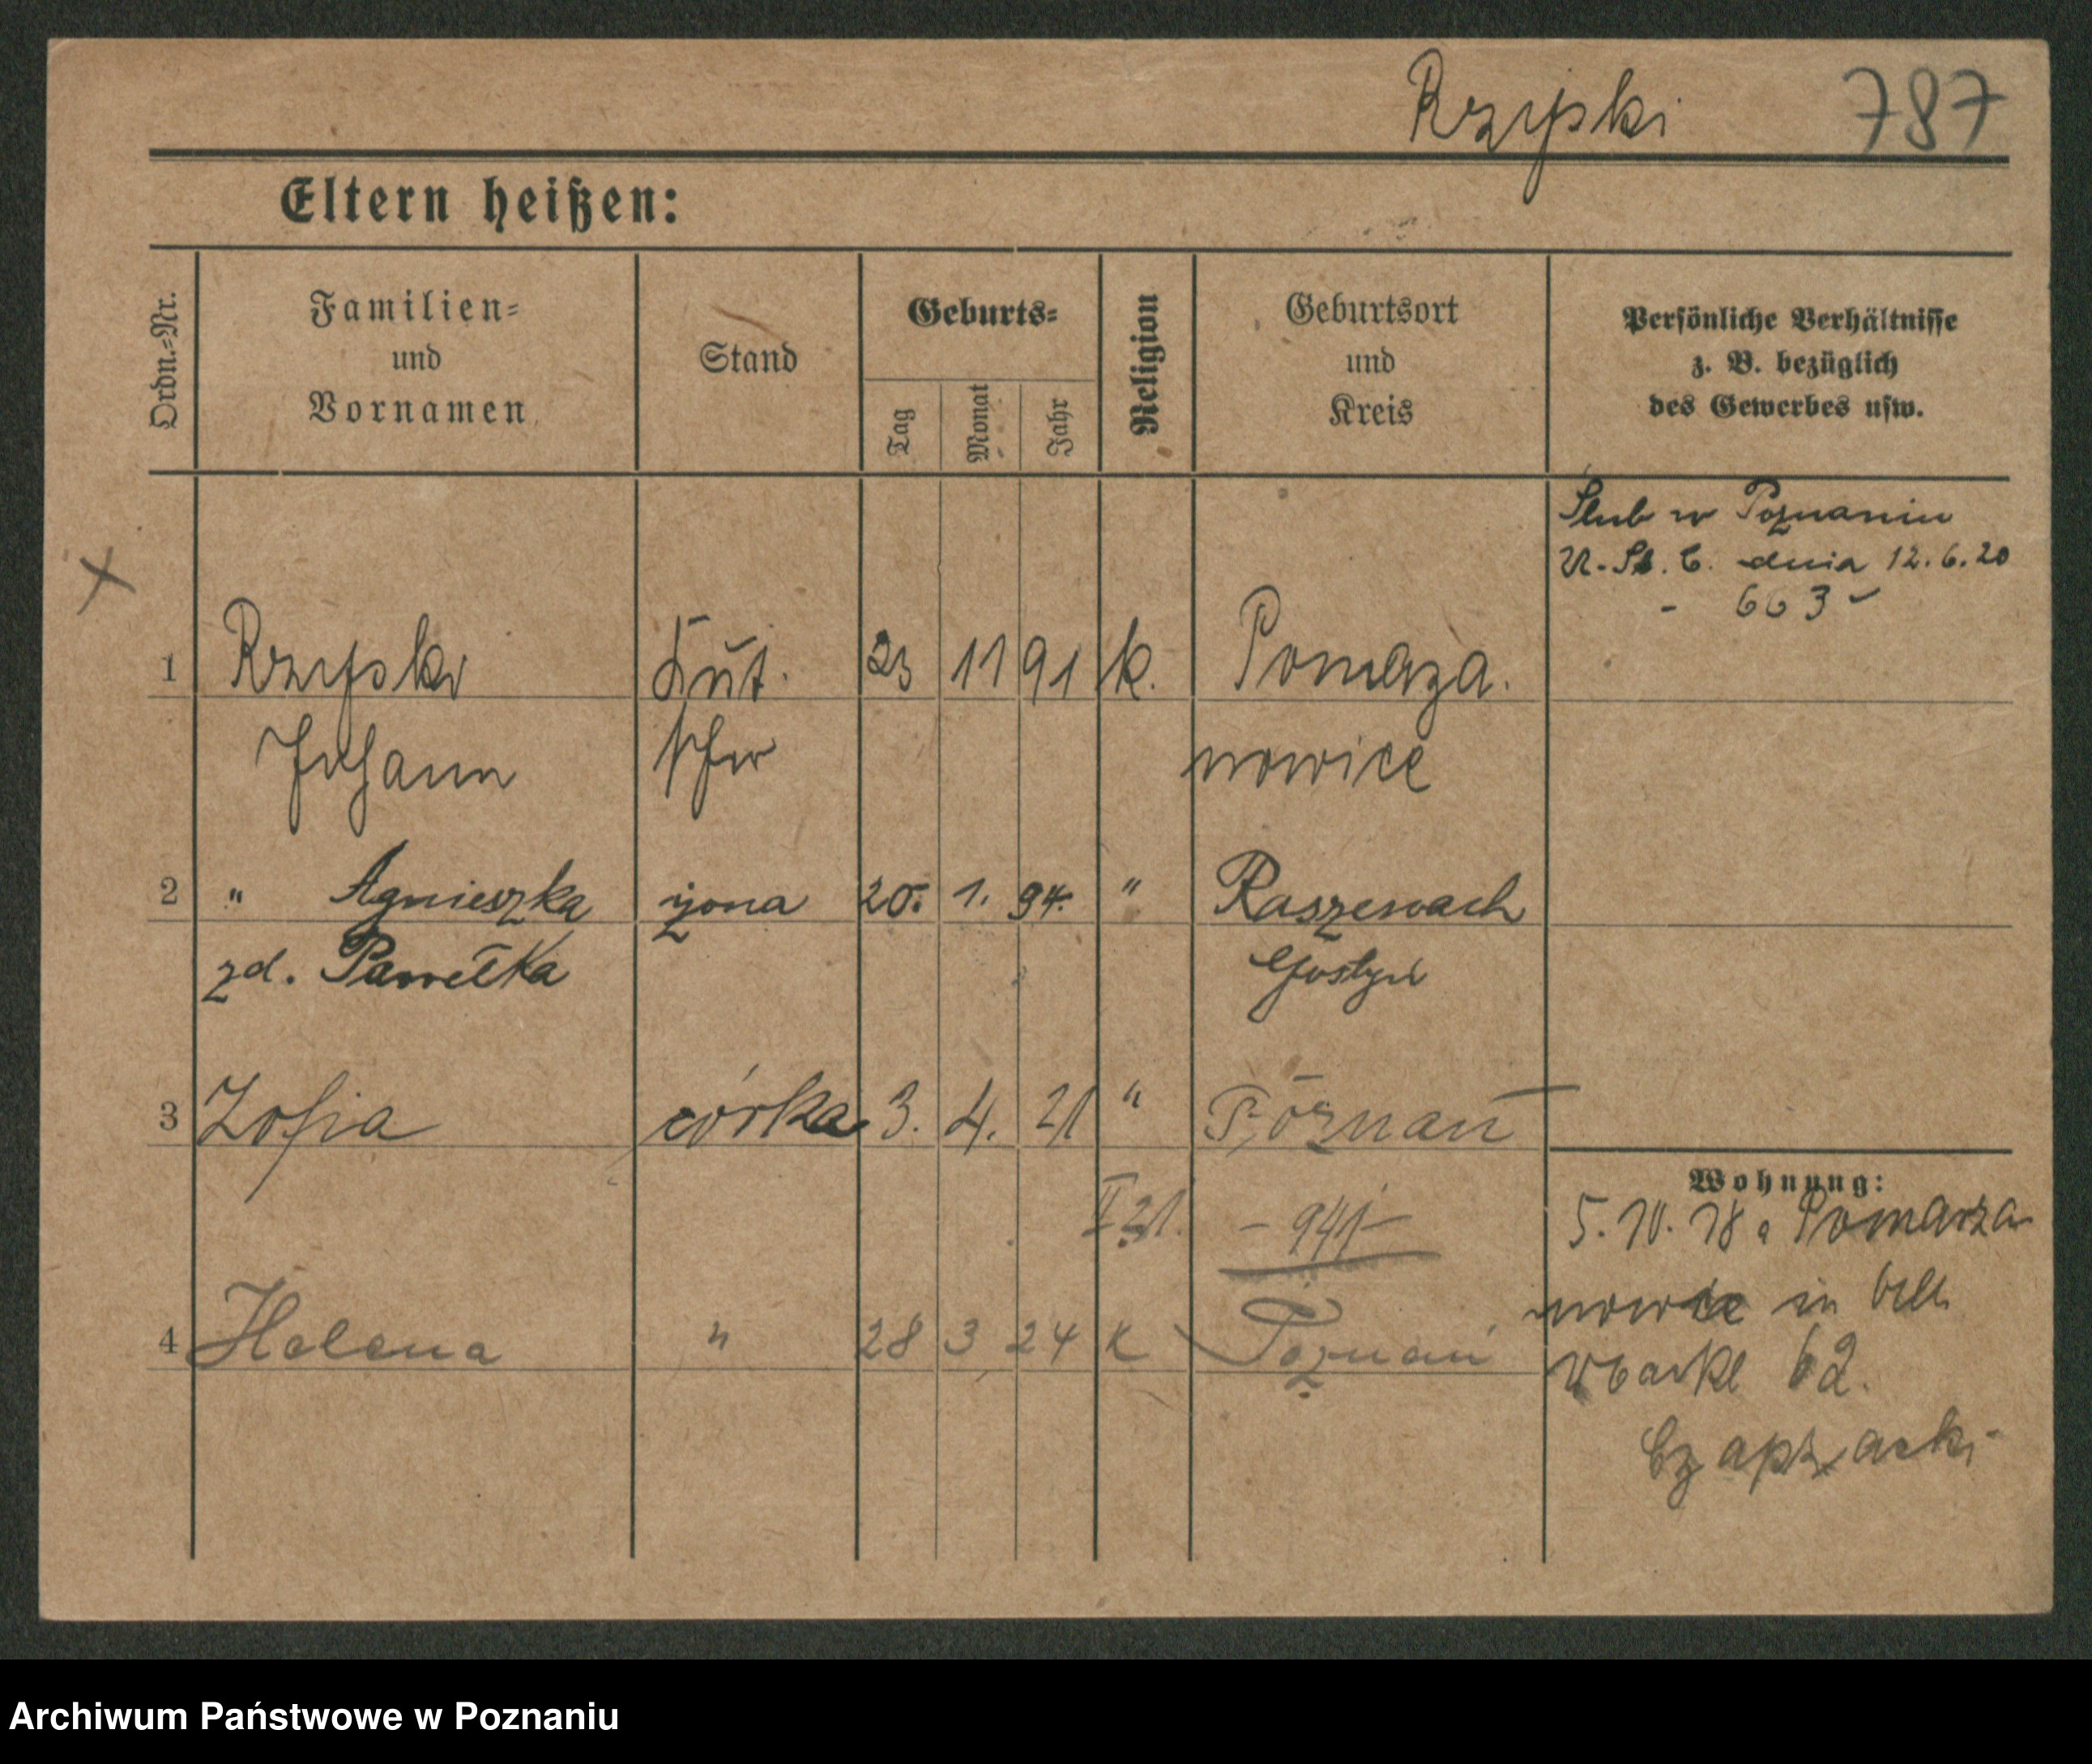 Rzepski 787
Eltern heißen:
Ordn.-Nr.
Familien-
und
Vornamen
Stand
Geburts-
Tag
Monat
Jahr
Religion
Geburtsort
und
Kreis
Persönliche Verhältnisse
z. B. bezüglich
des Gewerbes usw.
Ślub w Poznaniu
U. St. C. dnia 12.6.20
- 663 -
1 Rzepski Kut- 23 11 91 k. Pomarza-
Johann scher nowice
2 " Agnieszka żona 20. 1. 94. " Raszewach
zd. Pawełka Gostyń
3 Zofia córka 3. 4. 21 " Poznań
II 21. - 941 -
4 Helena " 28 3 24 k Poznań
Wohnung:
5.10.18 a Pomarza
nowice in
62.
Archiwum Państwowe w Poznaniu